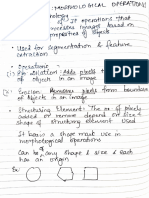 : MORPHOLOGICAL OPERATIONS
It operations that
process images based on
properties of objects
• Used for segmentation & feature
extraction
• Operations -
(i) Dilation: Adds pixels
of objects in an image
(ii) Erosion: Removes pixels from boundary
of objects in an image
• Structuring Element: The no of pixels
based or remove depend on size &
shape of structuring element used
It is a shape must use in
morphological operations
Can be any shape & size & each
has an origin
Ex: